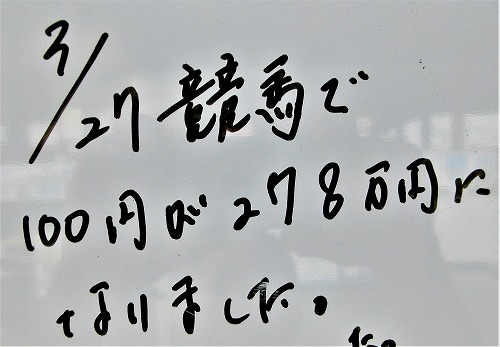 3/27 競馬で
100円が278万円に
なりました。